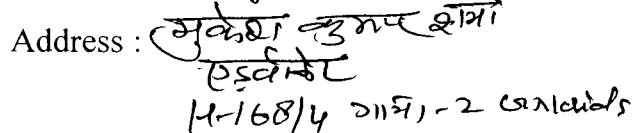 Address : मुकेश कुमार शर्मा
एडवोकेट
H-168/4 गामा-2